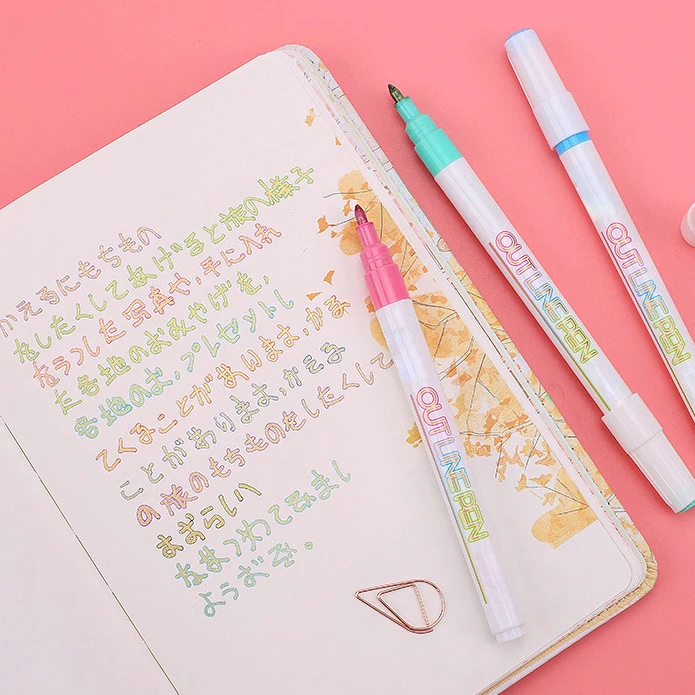 かえるにもちもの
をしたくしてあげると旅の様子
なうつした写真や,手に入れ
た各地のおみやげを,
各地のお,プレゼットし
てくることがあります,かえる
ことがあります,かえる
の旅のもちものをしたくして
すずらいハ
なまつわて
ようおぞ。
OUTLINE PEN
OUTLINE PEN
OUTLINE PEN